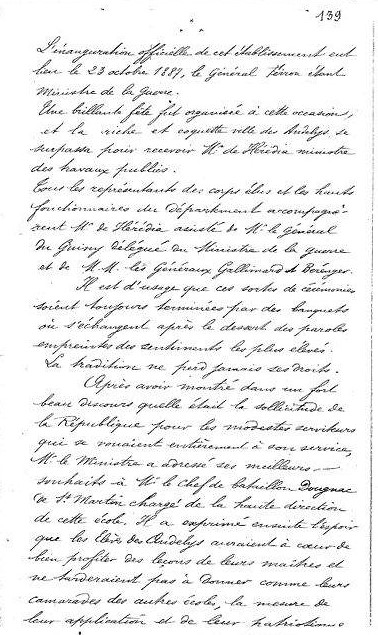 139
L'inauguration officielle de cet établissement eut
lieu le 23 octobre 1887, le Général Ferron étant
Ministre de la Guerre.
Une brillante fête fut organisée à cette occasion,
et la riche et coquette ville des Andelys se
surpassa pour recevoir Mr de Hérédia ministre
des travaux publics.
Tous les représentants des corps élus et les hauts
fonctionnaires du Département accompagnè-
rent Mr de Hérédia assisté de Mr le Général
du Guiny délégué du Ministre de la guerre
et de M.M. les Généraux Gallimard et Berenger.
Il est d'usage que ces sortes de cérémonies
soient toujours terminées par des banquets
où s'échangent après le dessert des paroles
empreintes des sentiments les plus élevés.
La tradition ne perd jamais ses droits.
Après avoir montré dans un fort
beau discours quelle était la sollicitude de
la République pour les modestes serviteurs
qui se vouaient entièrement à son service,
Mr le Ministre a adressé ses meilleurs
souhaits à Mr le Chef de bataillon Dougnac
de St Martin chargé de la haute direction
de cette école. Il a exprimé ensuite l'espoir
que les élèves des Andelys auraient à cœur de
bien profiter des leçons de leurs maîtres et
ne tarderaient pas à donner comme leurs
camarades des autres écoles, la mesure de
leur application et de leur patriotisme